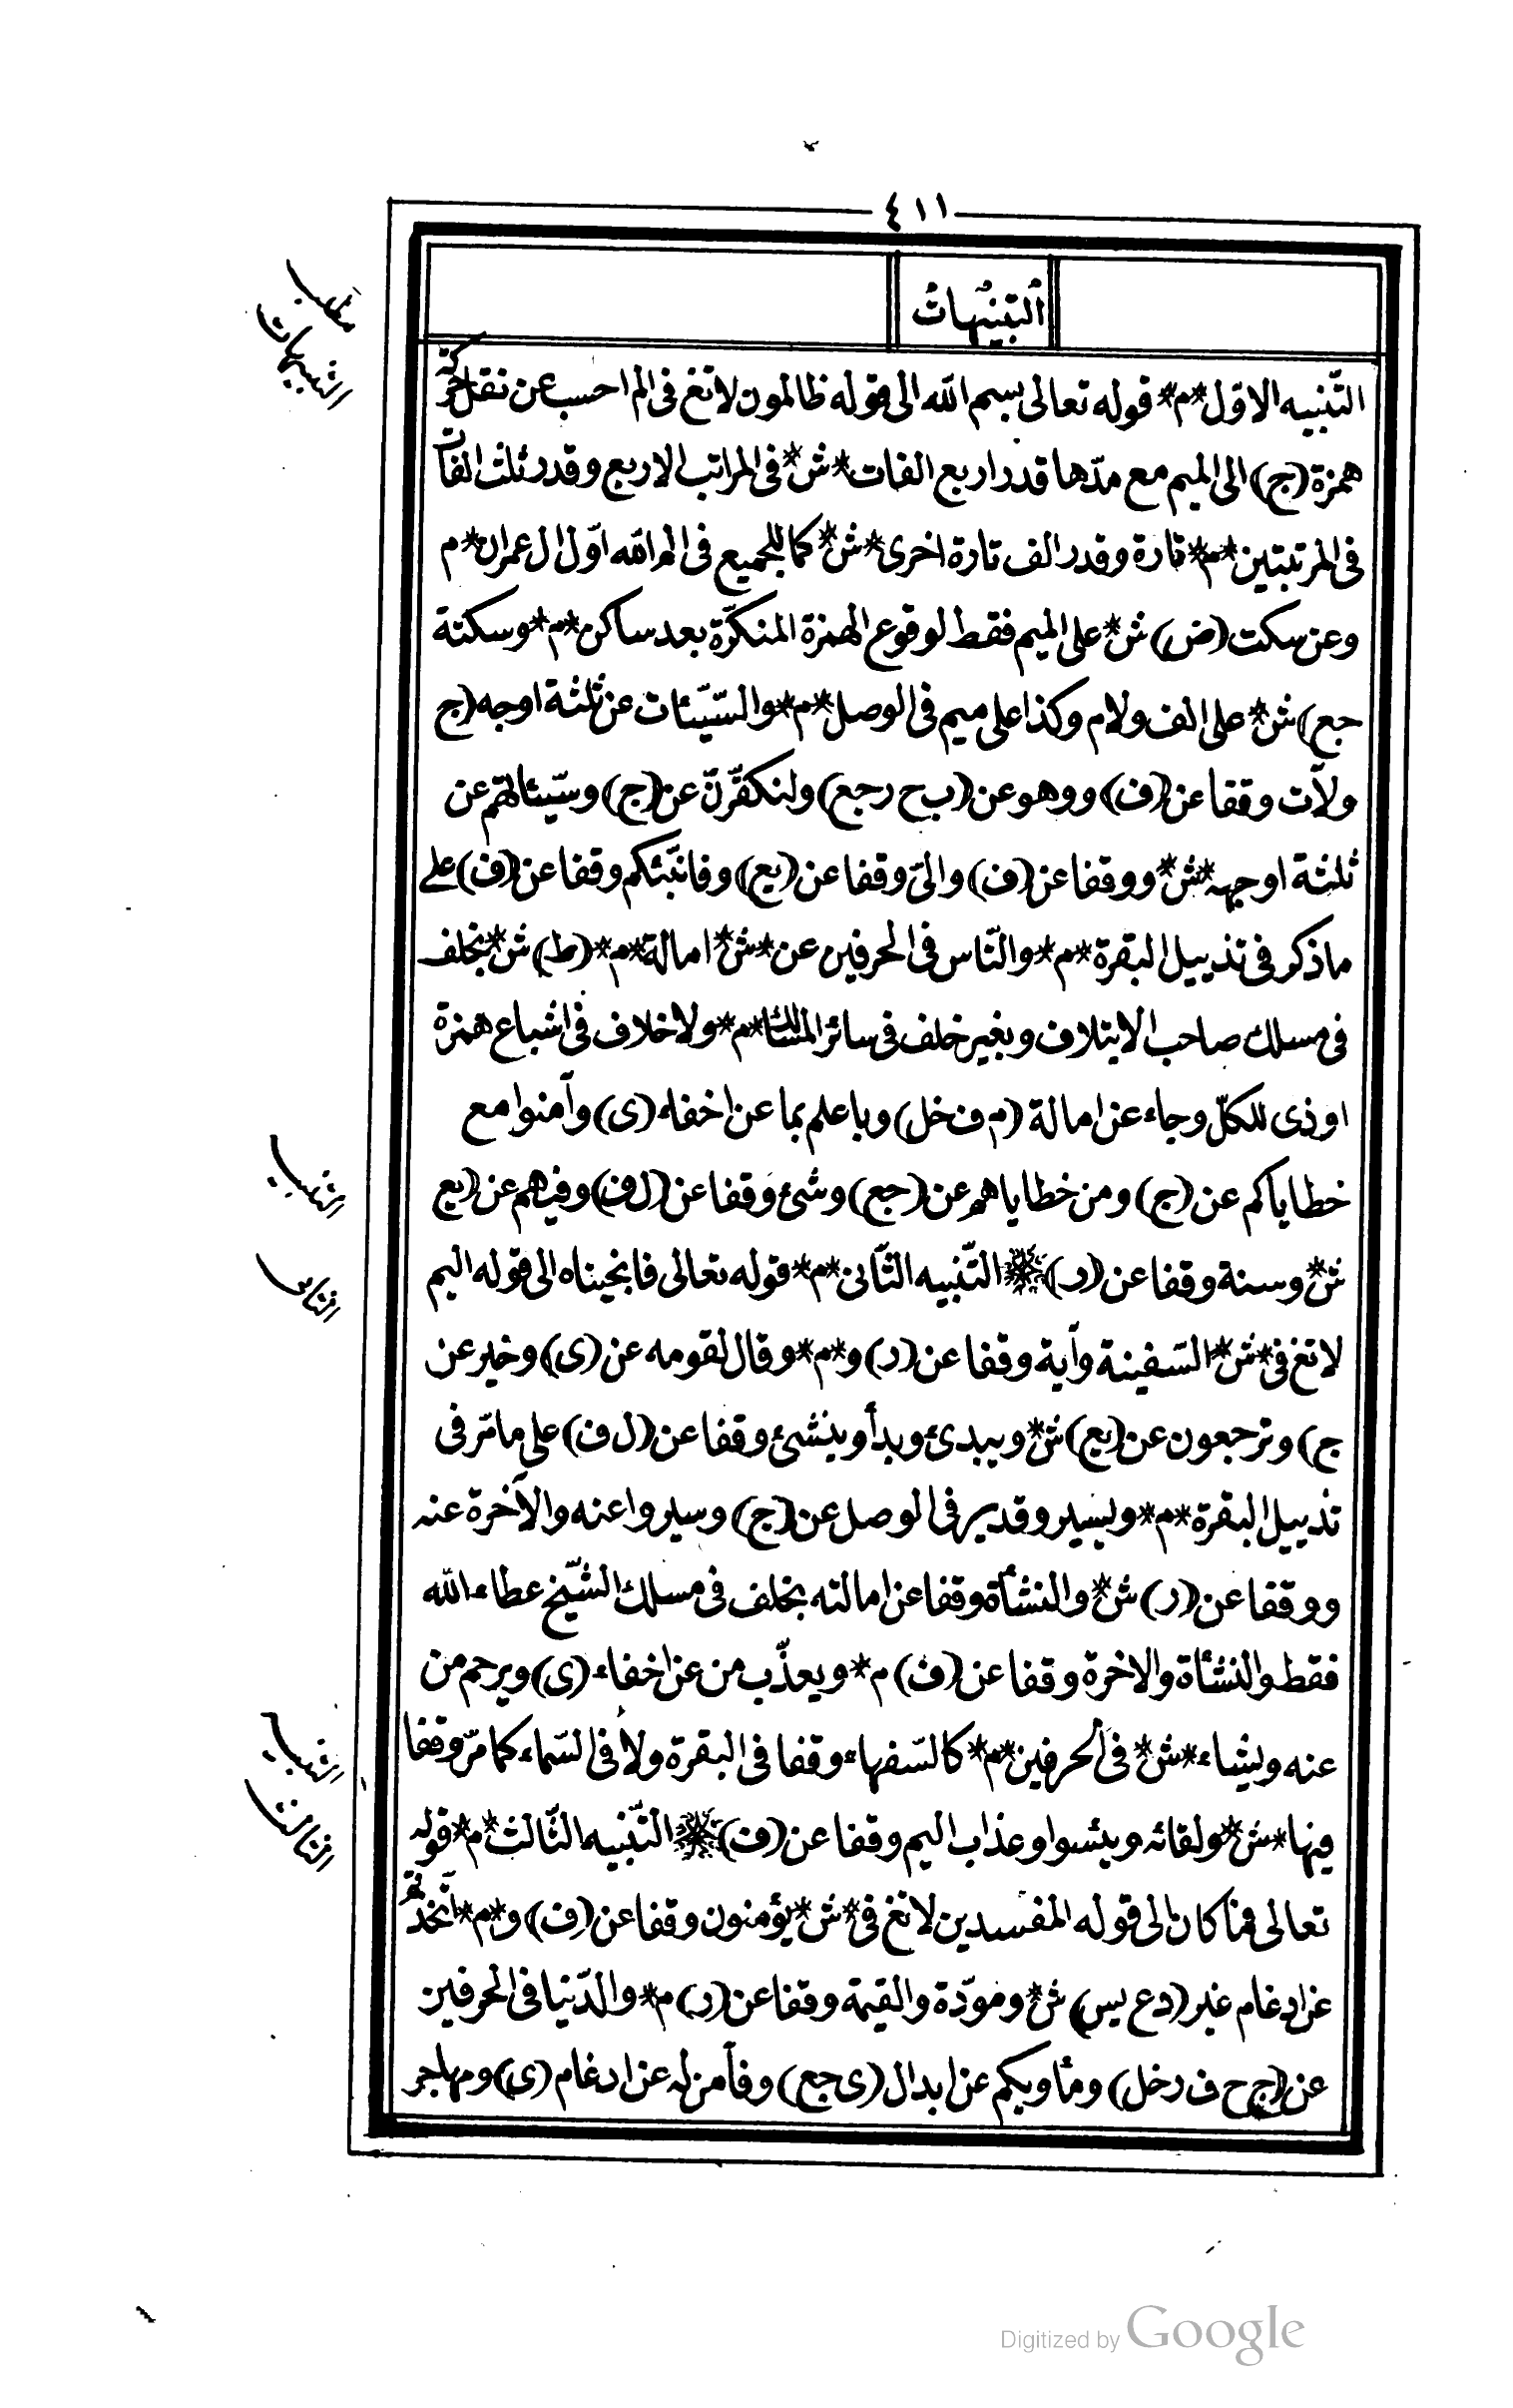 ٤١١
التنبيهات
مطلب
التنبيهات
التّنبيه الاوّل*م* قوله تعالى بسم الله الى قوله ظالمون لا تغ فى الم احسب عن نقل حركة
همزة (ج) الى الميم مع مدّها قدر اربع الفات*ش* فى المراتب الاربع وقدر ثلث الفات
فى المرتبتين*م* تارة وقدر الف تارة اخرى*ش* كما للجميع فى الم الله اوّل ال عمران*م
وعن سكت (ض) ش* على الميم فقط لوقوع الهمزة المنكرّة بعد ساكن*م* وسكتة
جع) ش* على الف ولام وكذا على ميم فى الوصل*م* والسّيّئات عن ثلثة اوجه (ج
ولآت وقفا عن (ف) ووهو عن (ب ح ر جع) ولنكفّرنّ عن (ج) وسيّئاتهم عن
ثلثة اوجهه*ش* ووقفا عن (ف) والىّ وقفا عن (يع) وفانبّئكم وقفا عن (ف) على
ماذكر فى تذييل البقرة*م* والنّاس فى الحرفين عن*ش* امالة*م* (ط) ش* بخلف
فى مسلك صاحب الايتلاف وبغير خلف فى سائر المسالك*م* ولا خلاف فى اشباع همزة
اوذى للكلّ وجاء عن امالة (م ف خل) وباعلم بما عن اخفاء (ى) وآمنوا مع
التنبيه
خطاياكم عن (ج) ومن خطاياهم عن (جع) وشئ وقفا عن (ل ف) وفيهم عن (يع
الثانى
ش* وسنة وقفا عن (ر) * التّنبيه الثّانى*م* قوله تعالى فانجيناه الى قوله اليم
لا تغ فى*ش* السّفينة وآية وقفا عن (ر) و*م* وقال لقومه عن (ى) وخير عن
ج) وترجعون عن (يع) ش* ويبدئ وبدأ وينشئ وقفا عن (ل ف) على مامرّ فى
تذييل البقرة*م* ويسير وقدير فى الوصل عن (ج) وسيروا عنه والآخرة عنه
ووقفا عن (ر) ش* والنشأة وقفا عن امالته بخلف فى مسلك الشّيخ عطاء الله
فقط والنشأة والاخرة وقفا عن (ف) م* ويعذّب من عن اخفاء (ى) ويرحم من
التنبيه
عنه ويشاء*ش* فى الحرفين*م* كالسّفهاء وقفا فى البقرة ولا فى السّماء كما مرّ وقفا
الثالث
فيها*ش* ولقائه ويئسوا وعذاب اليم وقفا عن (ف) * التّنبيه الثّالث*م* قوله
تعالى فما كان الى قوله المفسدين لا تغ فى*ش* يؤمنون وقفا عن (ف) و*م* اتّخذتم
عن ادغام غير (د ع يس) ش* ومودّة والقيمة وقفا عن (ر) م* والدّنيا فى الحرفين
عن (ج ح ف ر خل) ومأويكم عن ابدال (ى جع) وفآمن له عن ادغام (ى) ومهاجر
Digitized by Google